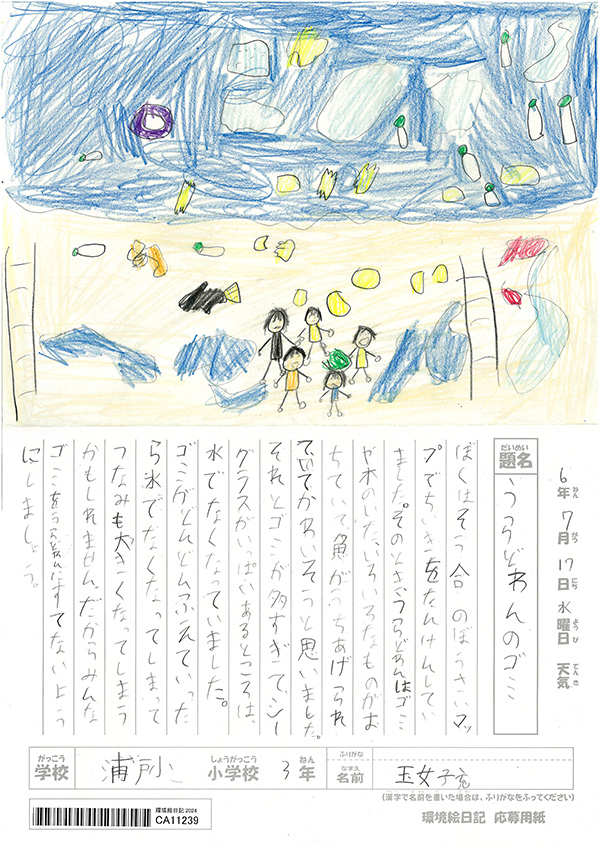 6年7月17日水曜日 天気
ねん がつ にち ようび てんき
だいめい
題名 うらどわんのゴミ
ぼくはそう合のぼうさいマッ
プでちいきをたんけんしてい
ました。そのときうらどわんはゴミ
や木のいた、いろいろなものがお
ちていて、魚がうちあげられ
ていてかわいそうと思いました。
それとゴミが多すぎて、シー
グラスがいっぱいあるところは、
水でなくなっていました。
ゴミがどんどんふえていった
ら氷でなくなってしまって
つなみも大きくなってしまう
かもしれません。だからみんな
ゴミをうらどわんにすてないよう
にしましょう。
がっこう しょうがっこう ねん ふりがな
学校 浦戸小 小学校 3年
なまえ
名前
(漢字で名前を書いた場合は、ふりがなをふってください)
環境絵日記 2024
CA11239
環境絵日記 応募用紙